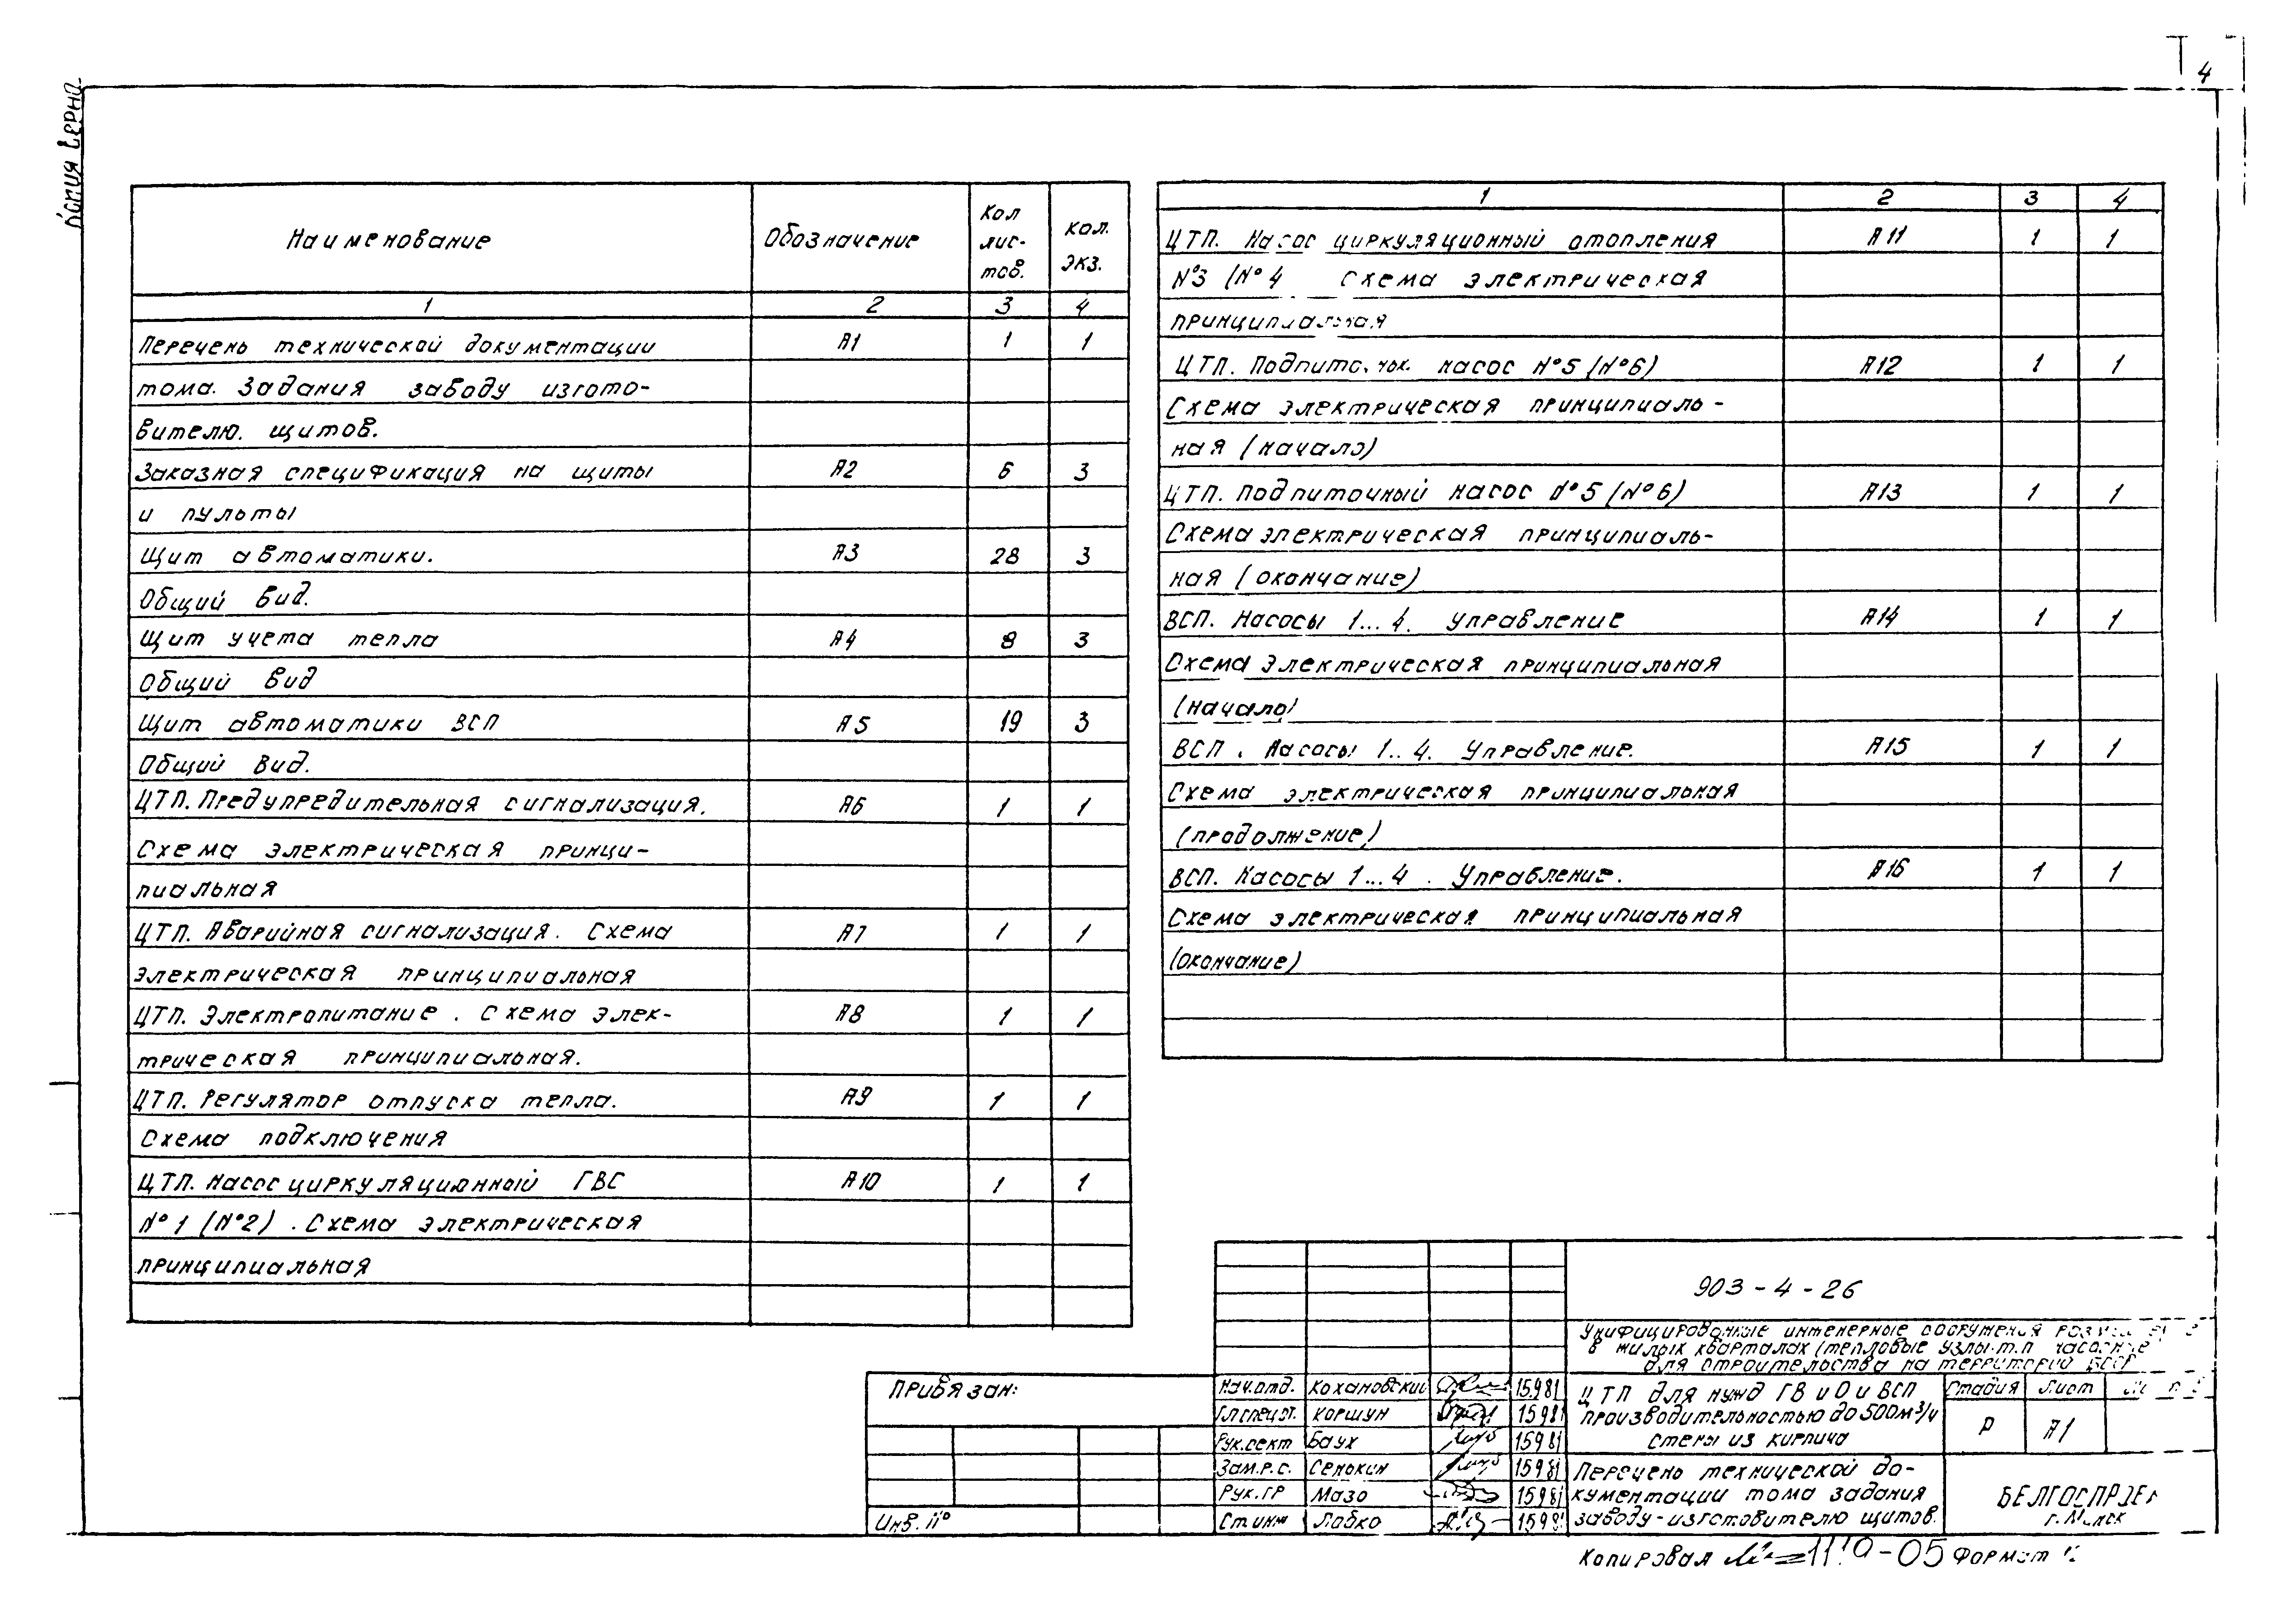 4
Копия верна
Наименование
Обозначение
Кол лис- тов.
кол. экз.
1 2 3 4
Перечень технической документации А1 1 1
тома. Задания заводу изгото-
вителю. щитов.
Заказная спецификация на щиты А2 6 3
и пульты
Щит автоматики. А3 28 3
Общий вид.
Щит учета тепла А4 8 3
Общий вид
Щит автоматики ВСП А5 19 3
Общий вид.
ЦТП. Предупредительная сигнализация. А6 1 1
Схема электрическая принци-
пиальная
ЦТП. Аварийная сигнализация. Схема А7 1 1
электрическая принципиальная
ЦТП. Электропитание. Схема элек- А8 1 1
трическая принципиальная.
ЦТП. Регулятор отпуска тепла. А9 1 1
Схема подключения
ЦТП. Насос циркуляционный ГВС А10 1 1
№1 (№2). Схема электрическая
принципиальная
1 2 3 4
ЦТП. Насос циркуляционный отопления А11 1 1
№3 (№4 Схема электрическая
принципиальная
ЦТП. Подпиточ. насос №5 (№6) А12 1 1
Схема электрическая принципиаль-
ная (начало)
ЦТП. Подпиточный насос №5 (№6) А13 1 1
Схема электрическая принципиаль-
ная (окончание)
ВСП. Насосы 1...4. Управление А14 1 1
Схема электрическая принципиальная
(начало)
ВСП. Насосы 1..4. Управление. А15 1 1
Схема электрическая принципиальная
(продолжение)
ВСП. Насосы 1...4. Управление. А16 1 1
Схема электрическая принципиальная
(окончание)
903-4-26
Унифицированные инженерные сооружения
в жилых кварталах (тепловые узлы т.п.
для строительства на территории БССР
Привязан:
Инв. №
Нач.отд. Кохановский 15.9.81
Гл.спец.от. Коршун 15.9.81
Рук.сект Баух 15.9.81
Зам.р.с. Сенькин 15.9.81
Рук.гр Мазо 15.9.81
Ст.инж Лабко 15.9.81
ЦТП для нужд ГВ и О и ВСП
производительностью до 500м³/ч
стены из кирпича
Стадия Лист
Р А1
Перечень технической до-
кументации тома задания
заводу-изготовителю щитов.
БЕЛГОСПРОЕКТ
г. Минск
Копировал
-05 Формат